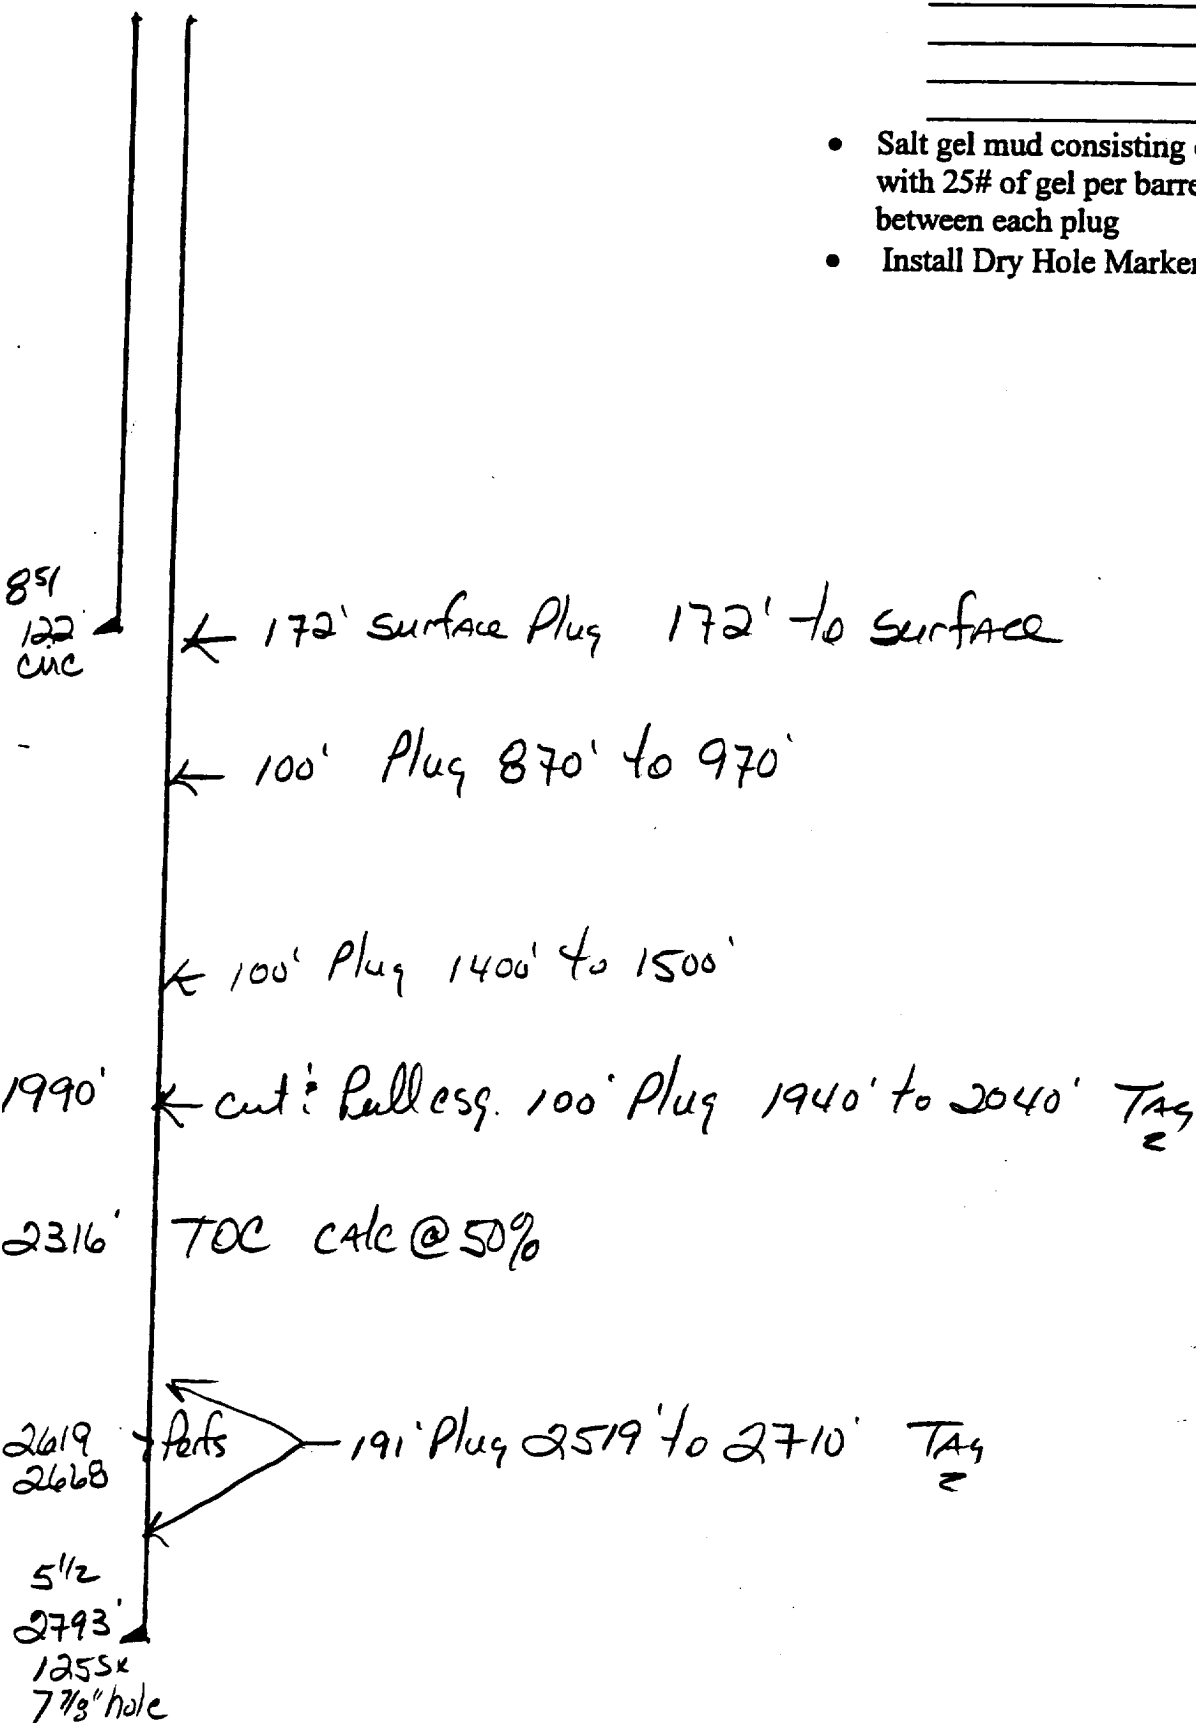 • Salt gel mud consisting
with 25# of gel per barre
between each plug
• Install Dry Hole Marker
8 5/
122
circ
172' surface Plug 172' to surface
100' Plug 870' to 970'
100' Plug 1400' to 1500'
1990'
cut & Pull csg. 100' Plug 1940' to 2040' TAg
2316' TOC cAlc @ 50%
2619
2668
Perfs
191' Plug 2519' to 2710' TAg
5 1/2
2793'
125sx
7 7/8" hole